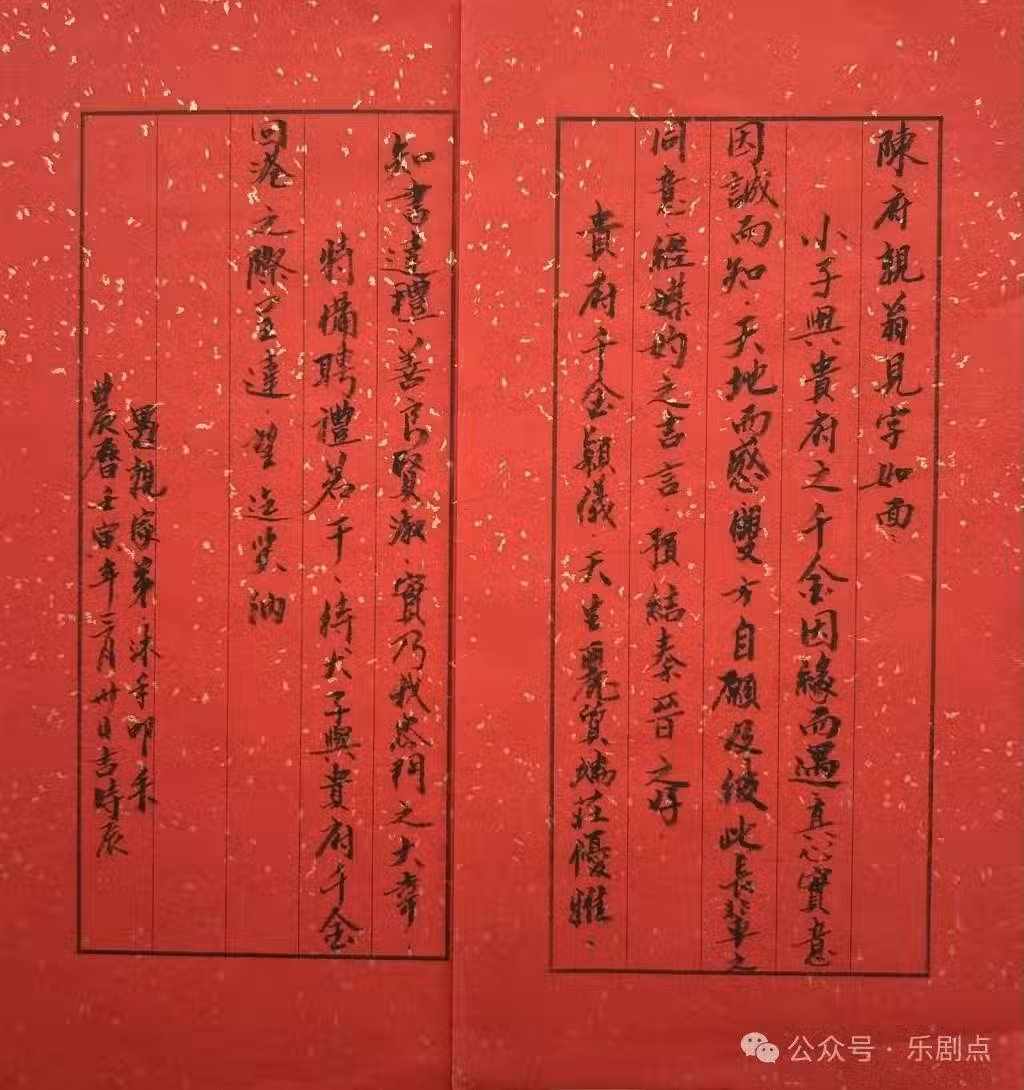 陳府親翁見字如面
小子與貴府之千金因緣而遇真心實意
因誠而知．天地而感雙方自願及彼此長輩之
同意．經媒妁之言言．預結秦晉之好
貴府千金穎儀．天生麗質端莊優雅、
知書達禮、善良賢淑．實乃我氏門之大幸．
特備聘禮若干、待犬子與貴府千金
回港之際室達．望迄笑納
愚親家弟．沐手叩手
農曆壬寅年三月廿日吉時辰
公众号·乐剧点